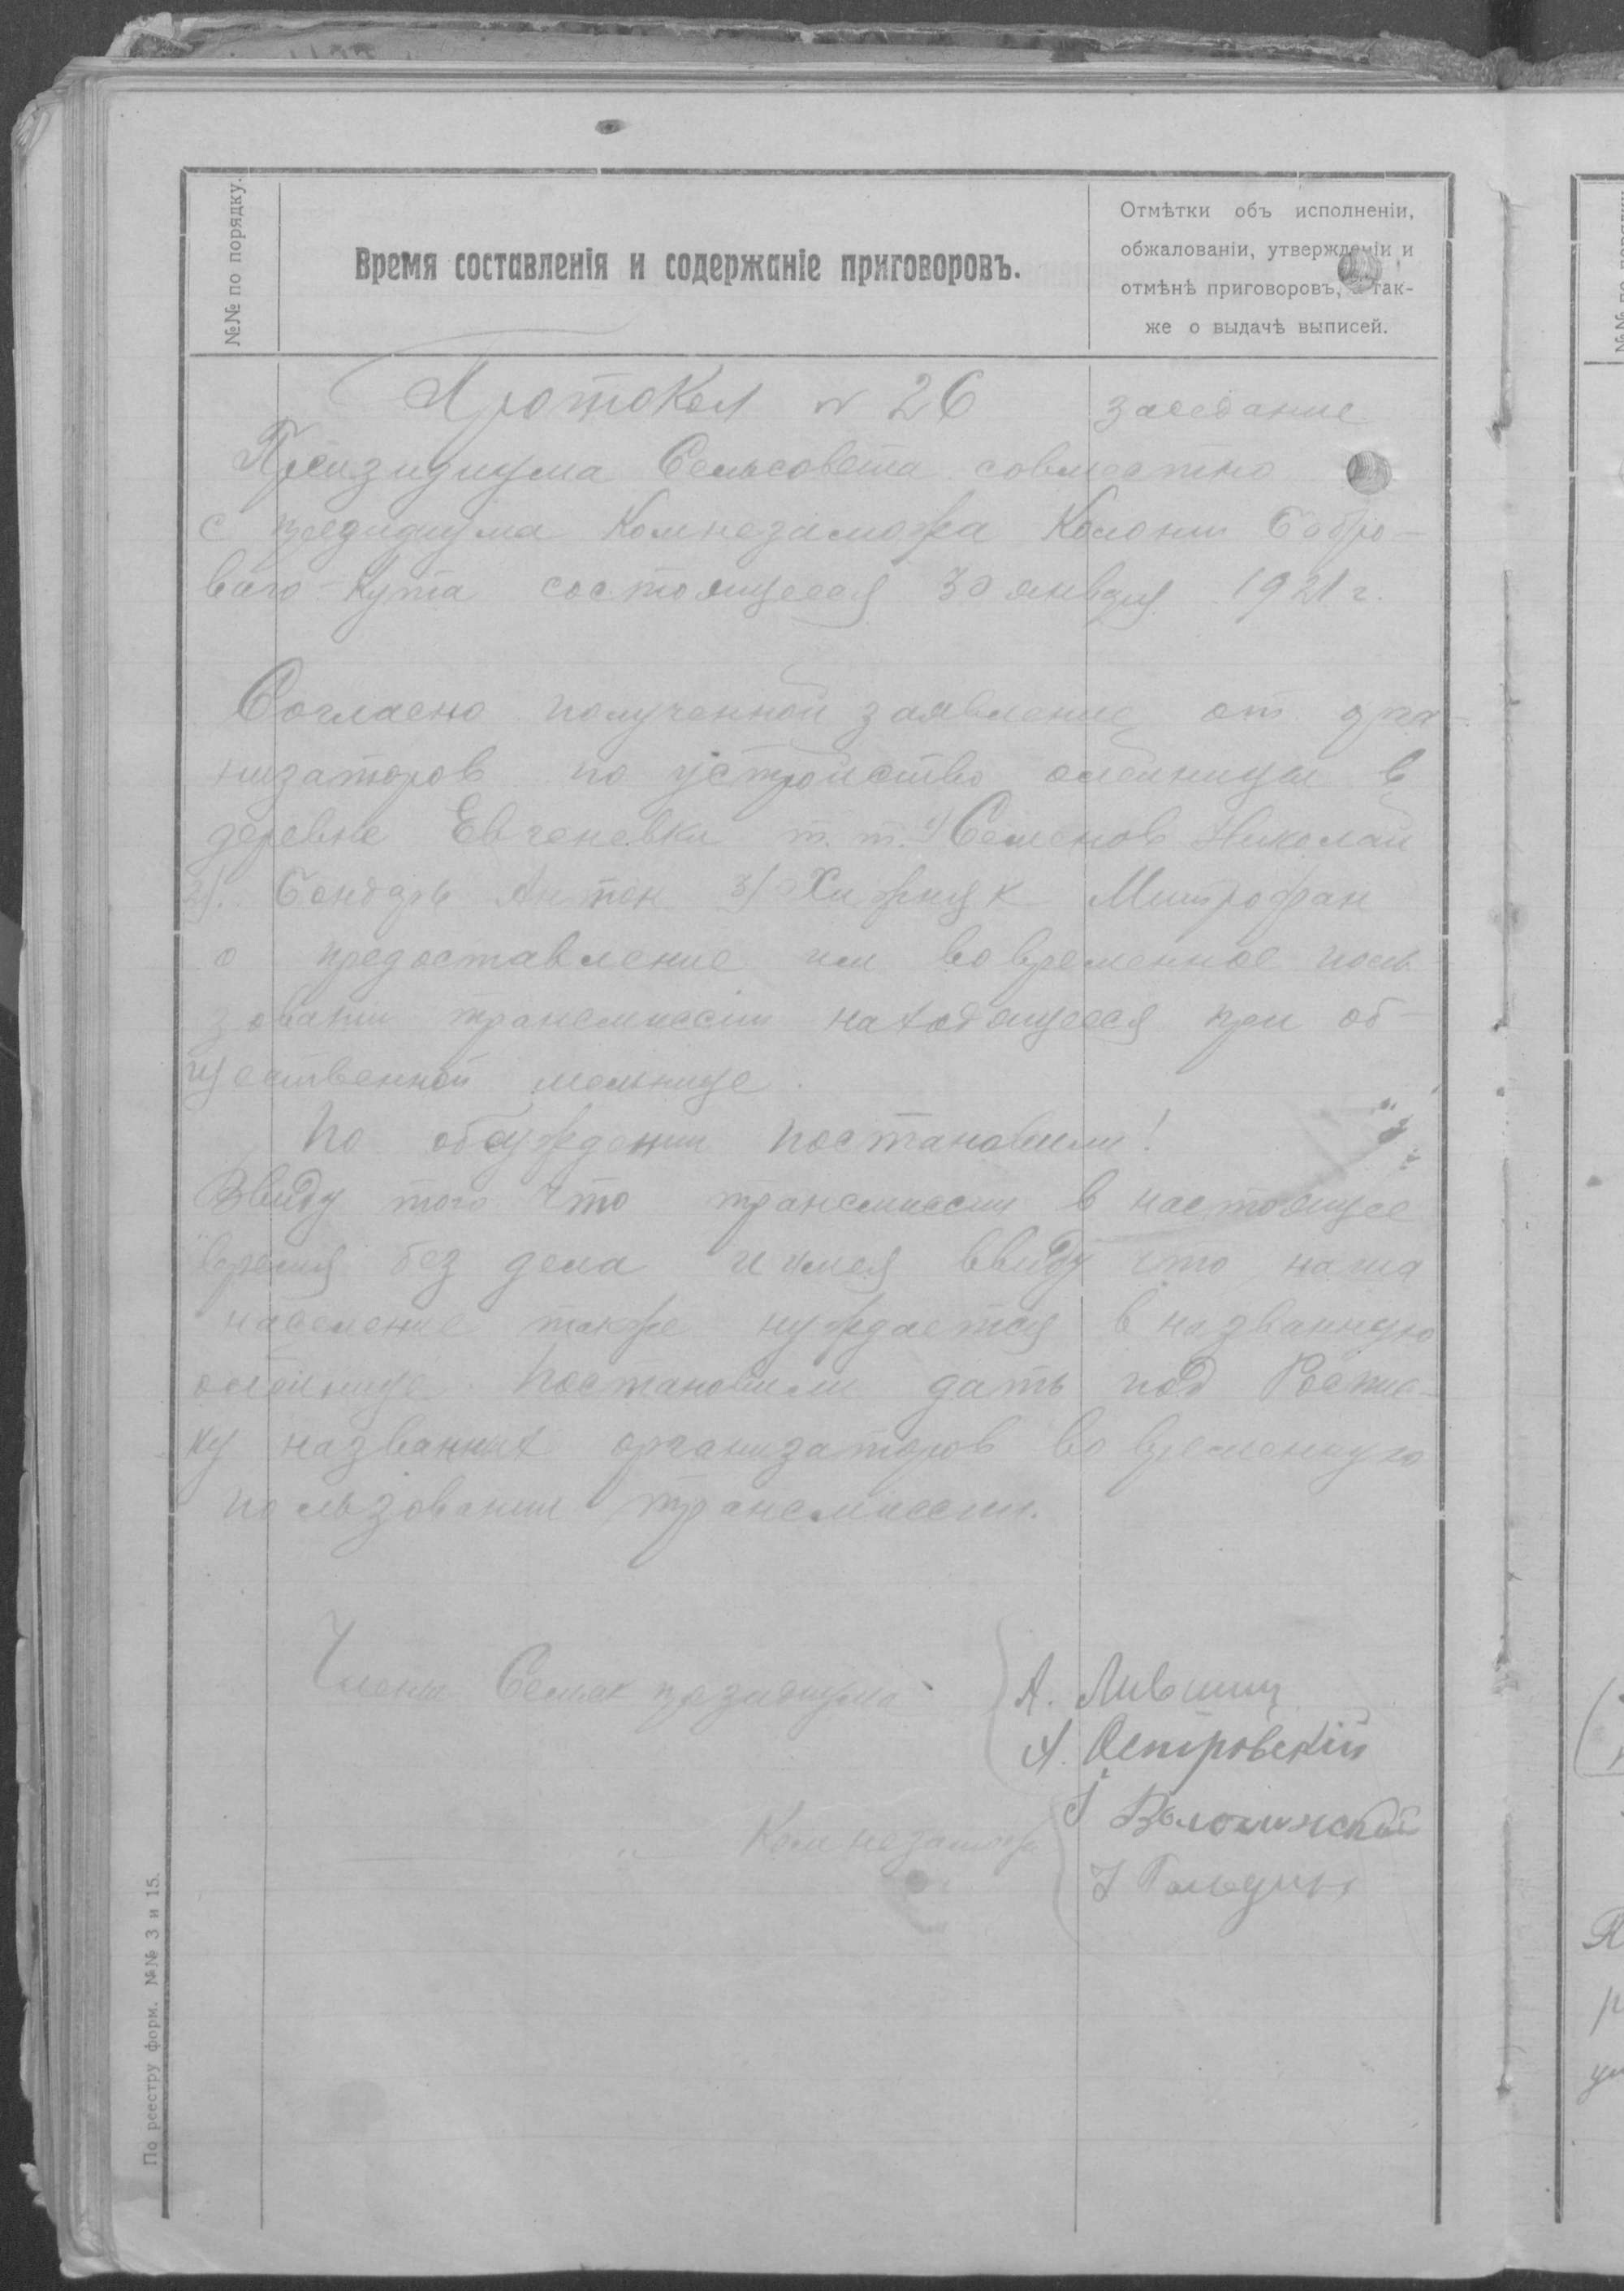 №№ по порядку.
Время составленія и содержаніе приговоровъ.
Отмѣтки объ исполненіи,
обжалованіи, утвержденіи и
отмѣнѣ приговоровъ, а так-
же о выдачѣ выписей.
Протокол № 26 заседание
Президиума Сельсовета совместно
с президиума Комнезаможа Колонии Бобро-
ваго-Кута состоящееся 30 января 1921 г.
Согласно полученной заявление от орга-
низаторов по устройство олейницы в
деревне Евгеневки т. т. 1) Семенов Николай
2). Бондарь Антон 3) Хижняк Митрофан
о предоставление им во временное поль
зовании трансмиссии находящееся при об-
щественной мельнице.
По обсуждении постановили!
Ввиду того что трансмиссии в настоящее
время без дела и имея ввиду что наша
население также нуждается в названную
олейнице. Постановили дать под Роспис-
ку названных организаторов во временную
пользовании трансмиссии.
Члены Сельск президиума
А. Лившиц
А. Островскій
" Комнезамож
І Воложинский
І Гольдин
По реестру форм. №№ 3 и 15.